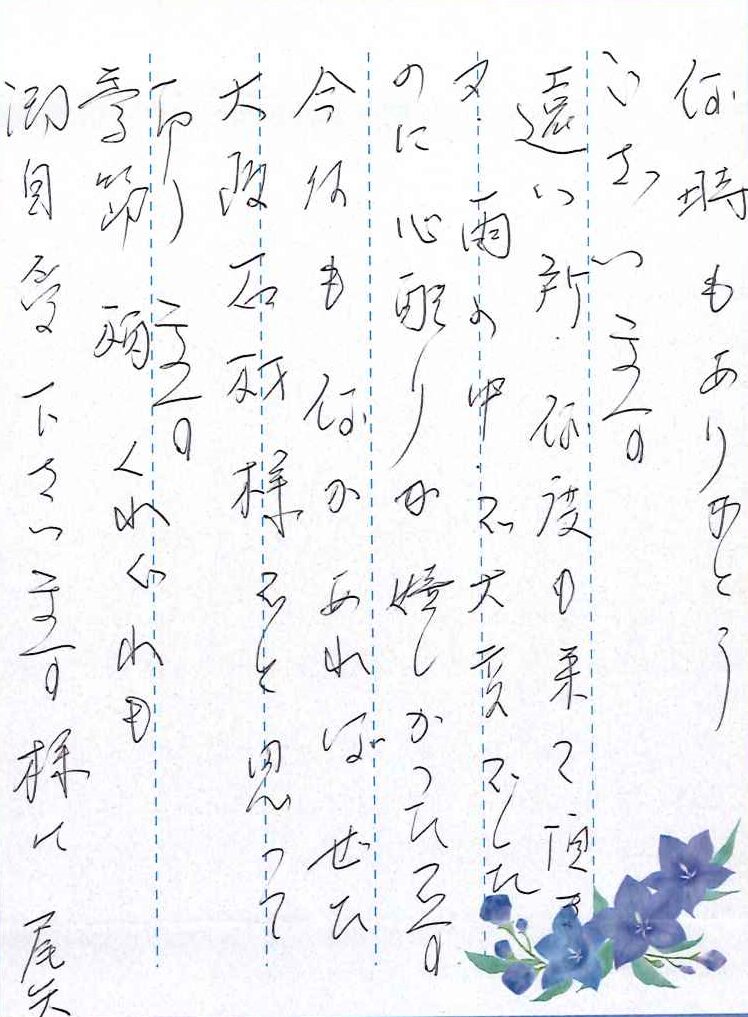 何時もありがとう
ございます
遠い所、何度も来て頂き
又、雨の中、で大変でした
のに心配りが嬉しかったです
今後も何かあればぜひ
大阪石材様でと思って
居ります
季節 頃 くれぐれも
御自愛下さいます様に 尾矢